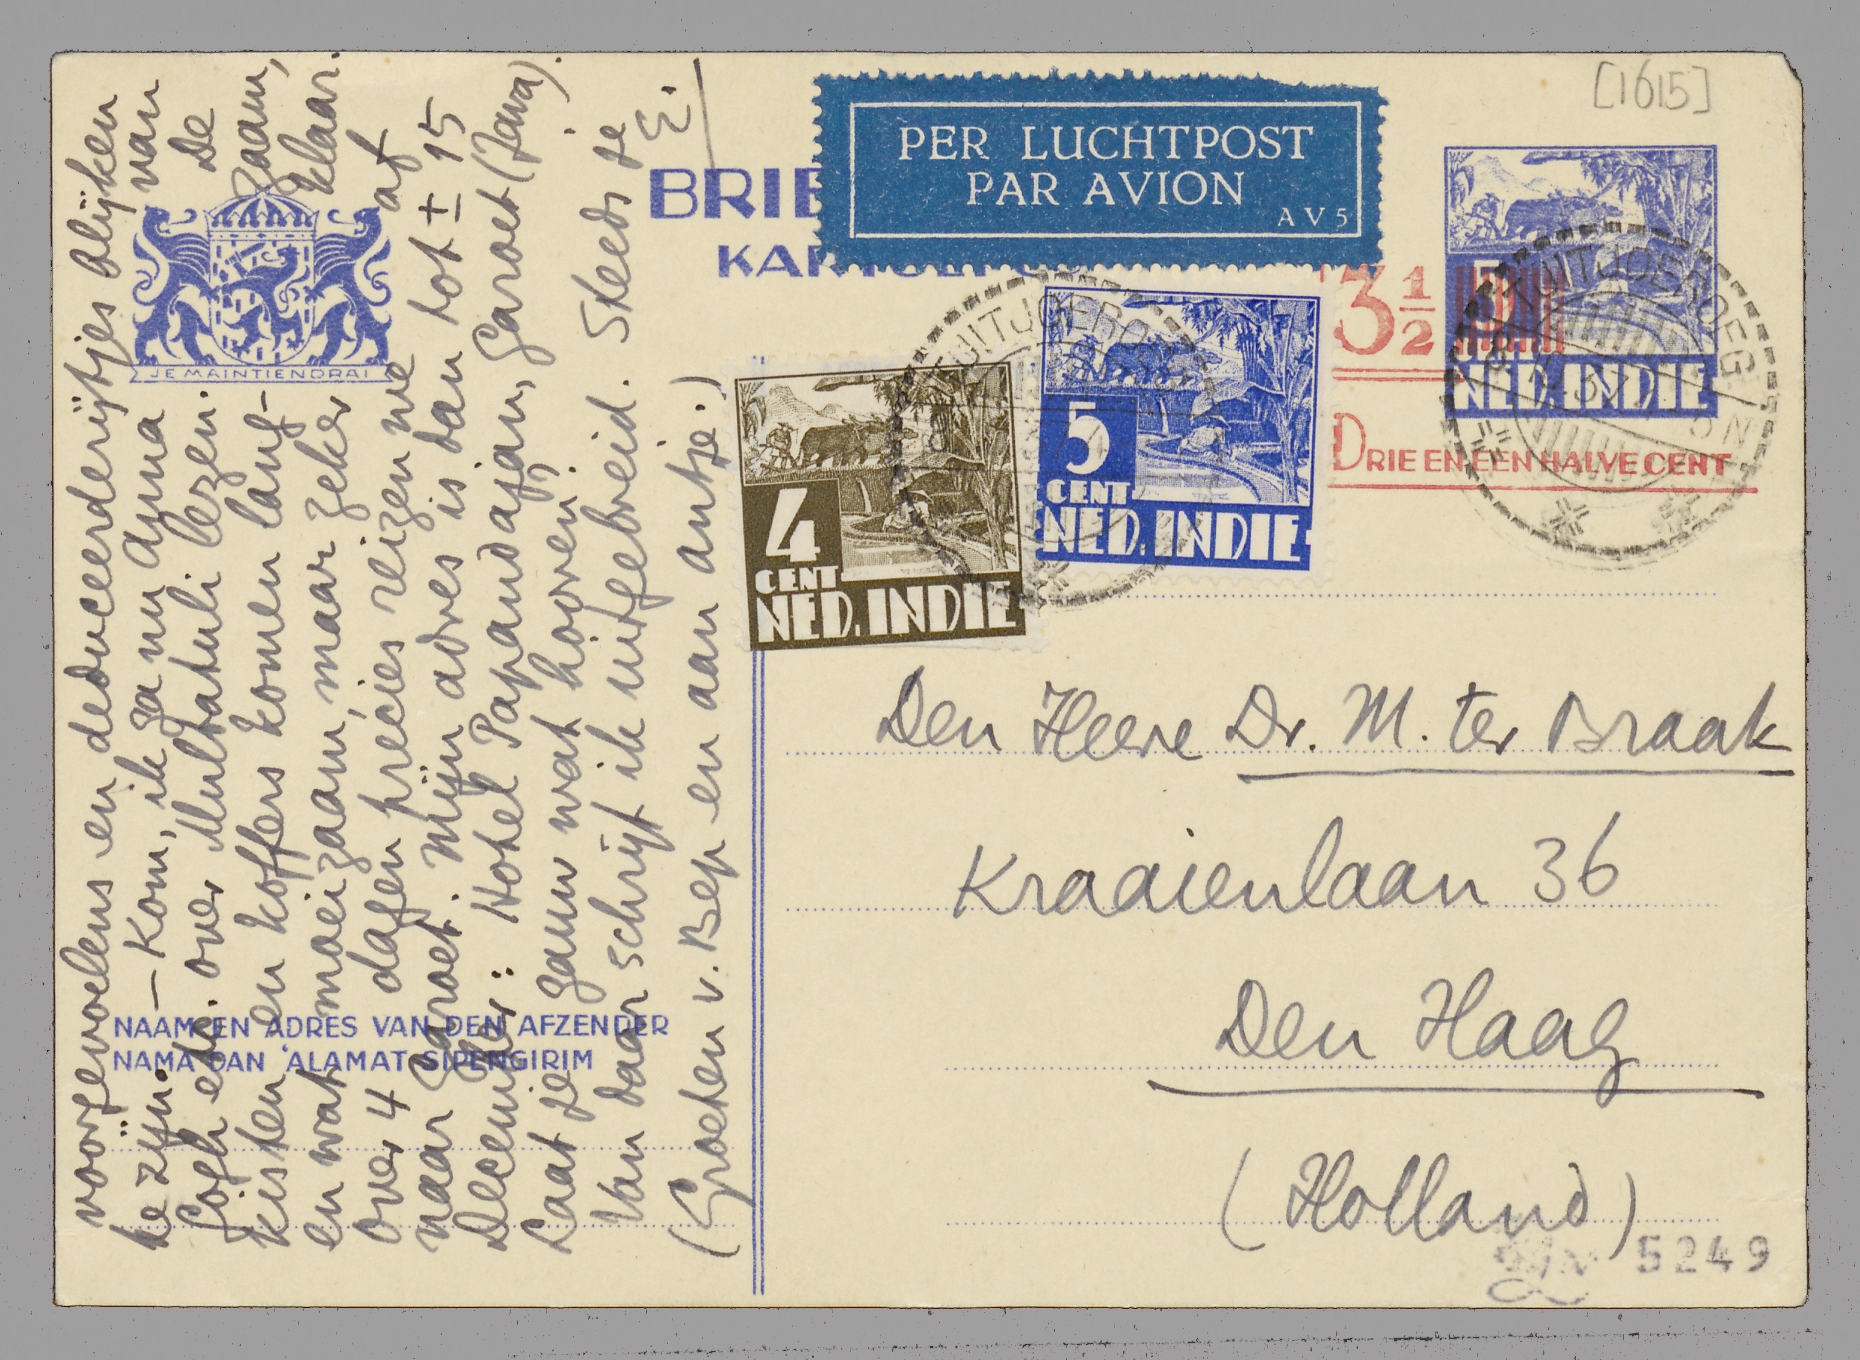 [1615]
PER LUCHTPOST
PAR AVION
AV5
BRIE
KAR
3½
5
NED. INDIE
DRIE EN EEN HALVE CENT
TJITJOEROEG
TJITJOEROEG
5
CENT
NED. INDIE
4
CENT
NED. INDIE
JE MAINTIENDRAI
Den Heere Dr. M. ter Braak
Kraaienlaan 36
Den Haag
(Holland)
5249
NAAM EN ADRES VAN DEN AFZENDER
NAMA DAN 'ALAMAT SIPENGIRIM
voorgevoelens en deduceerderijtjes blijken
te zijn. — Kom, ik ga nu Anna van
Gogh etc. over Multatuli lezen. De
kisten en koffers komen lang-zaam,
en wat moeizaam, maar zeker klaar.
Over 4 dagen precies reizen we af
naar Garoet. Mijn adres is dan tot ± 15
December: Hotel Papandajan, Garoet (Java).
Laat je gauw wat hooren?
Van daar schrijf ik uitgebreid. Steeds je
E.
(Groeten v. Bep en aan Antje.)